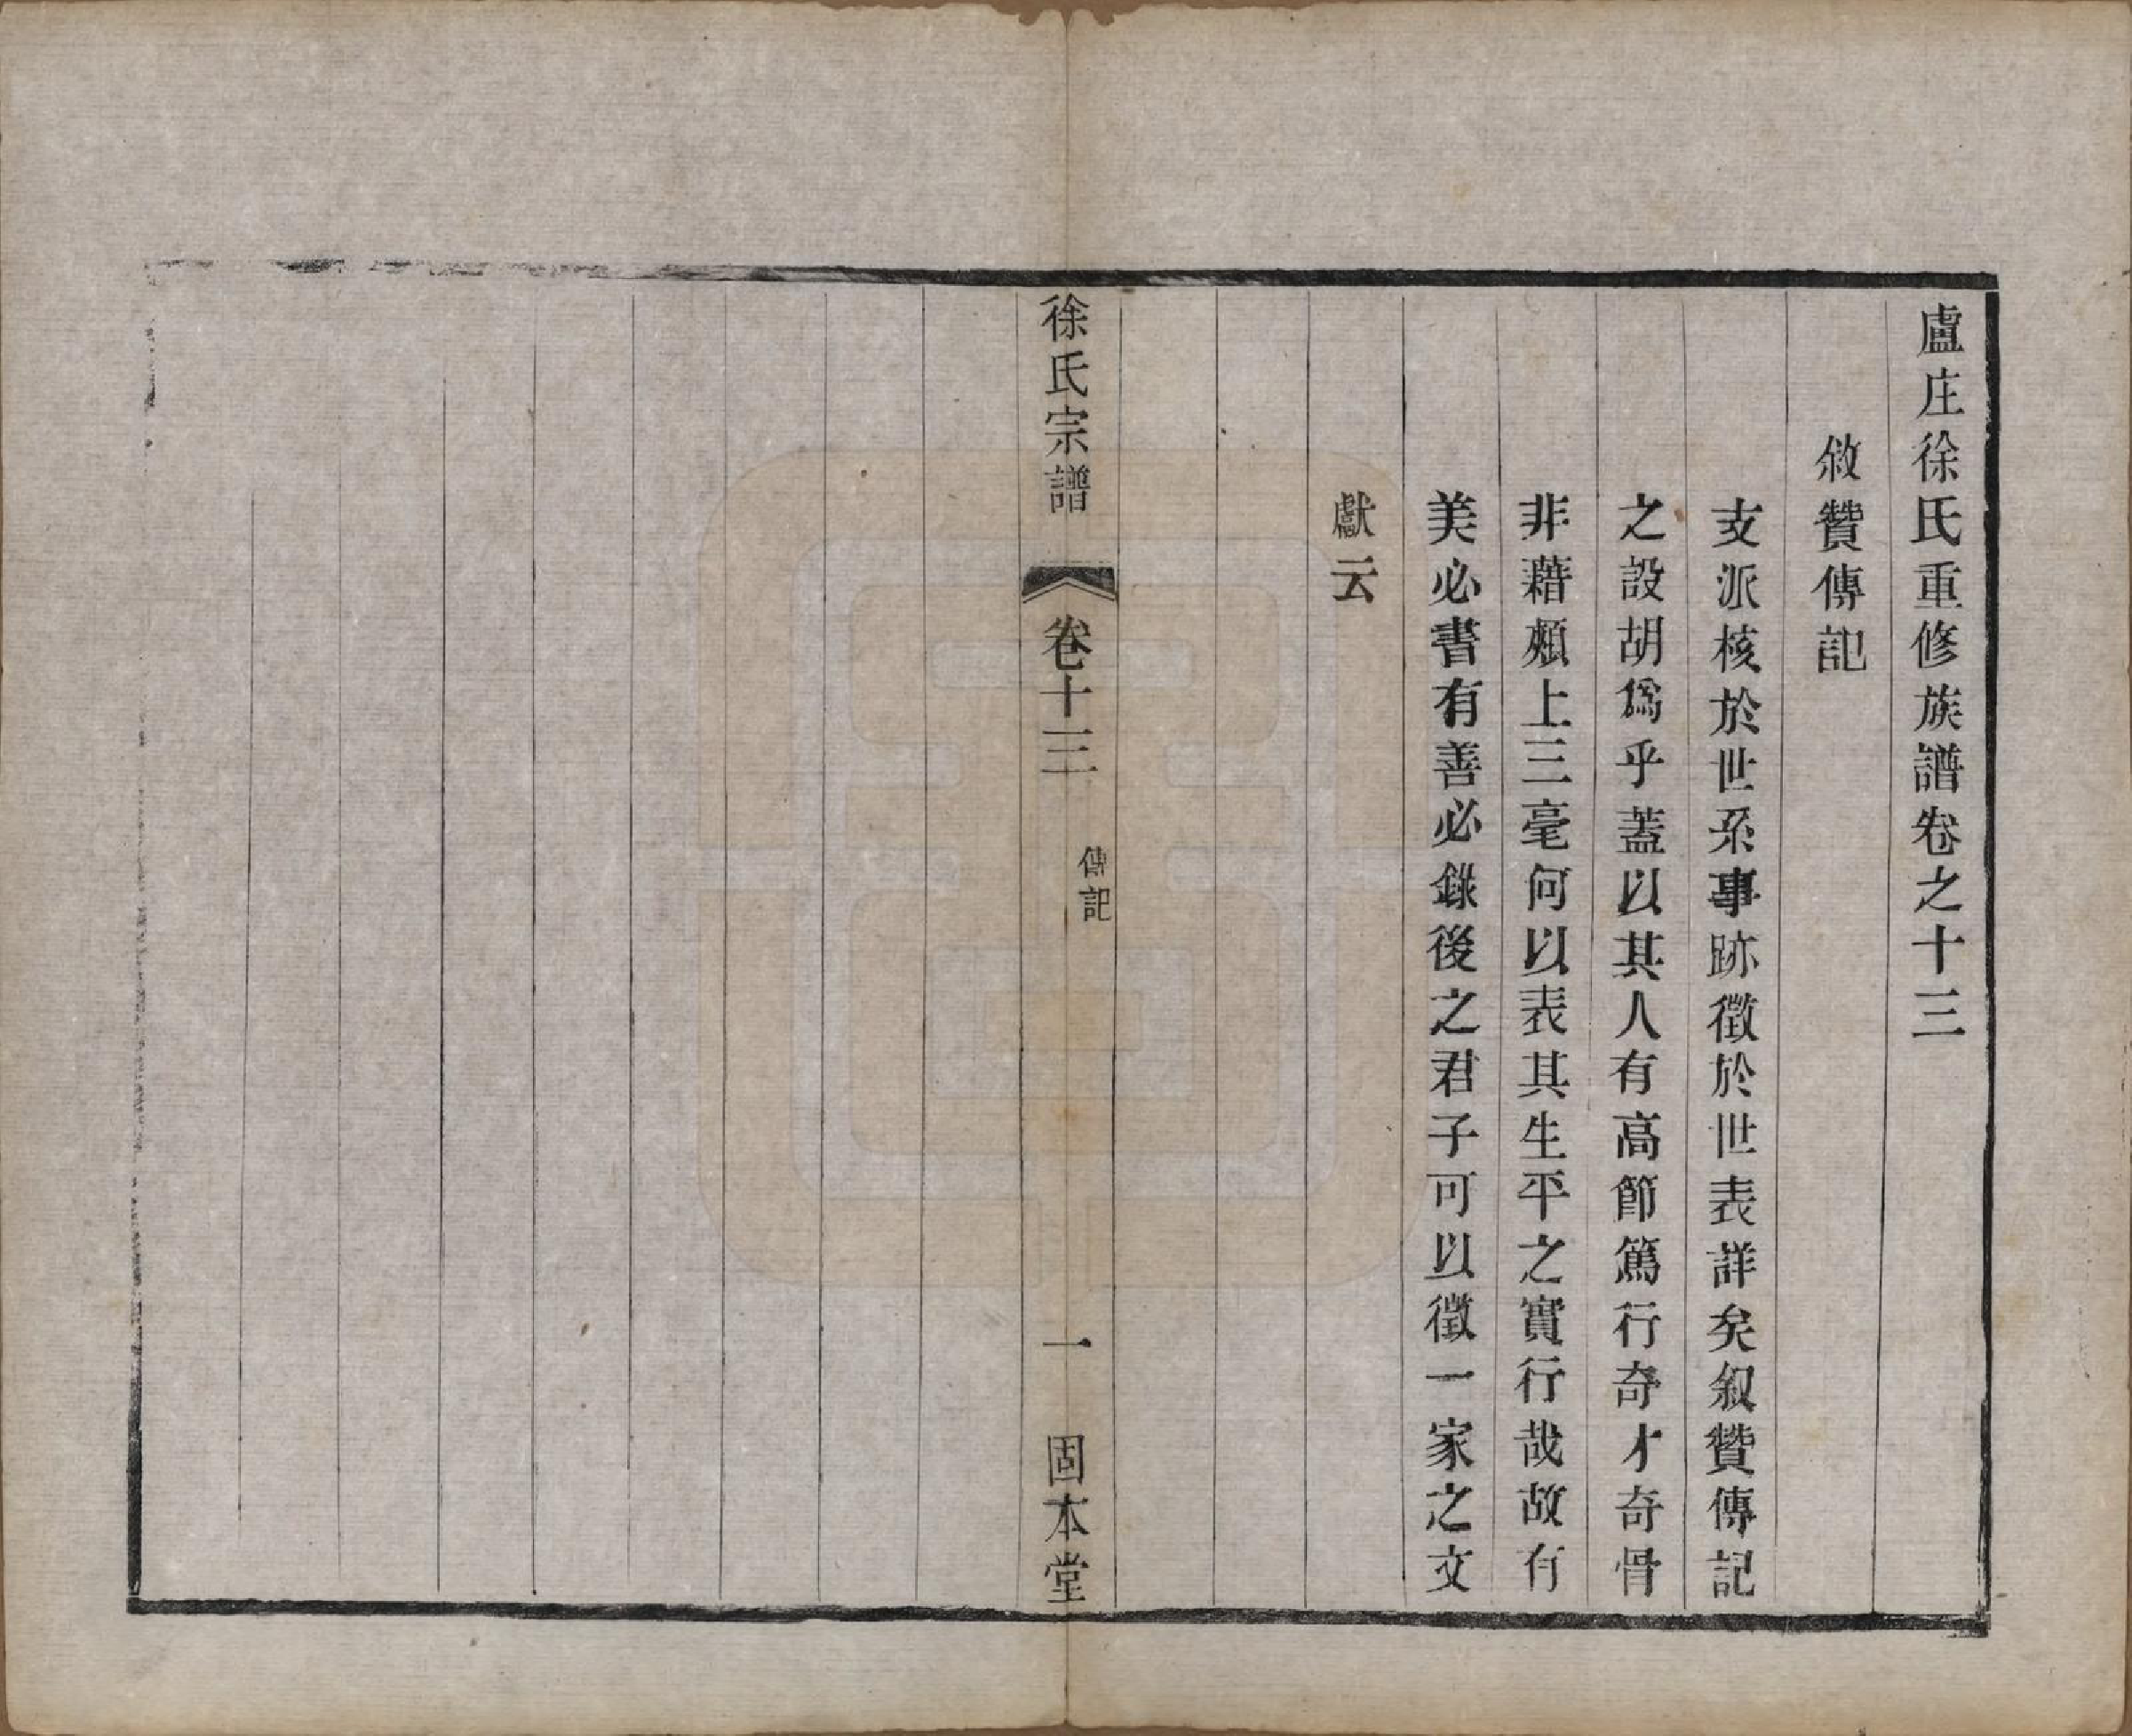 盧庄徐氏重修族譜卷之十三
敘贊傳記
支派核於世系事跡徵於世表詳矣叙贊傳記
之設胡爲乎蓋以其人有高節篤行奇才奇骨
非藉頰上三毫何以表其生平之實行哉故有
美必書有善必錄後之君子可以徵一家之文
獻云
徐氏宗譜
卷十三
傳記
一
固本堂